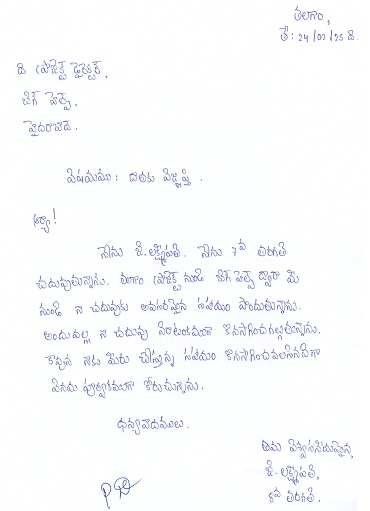 తలగాం,
తే: 24/02/25 ది
ది ప్రాజెక్ట్ డైరెక్టర్,
బిగ్ హెల్ప్,
హైదరాబాద్.
విషయము: దాతకు విజ్ఞప్తి.
అయ్యా!
నేను జి. లక్ష్మీపతి. నేను 7వ తరగతి
చదువుతున్నాను. తలగాం ప్రాజెక్ట్ నుండి బిగ్ హెల్ప్ ద్వారా మీ
నుండి నా చదువుకు అవసరమైన సహాయం పొందుతున్నాను.
అందువల్ల నా చదువు నిరాటంకముగా కొనసాగించగల్గుతున్నాను.
కావున నాకు మీరు చేస్తున్న సహాయం కొనసాగించవలసినదిగా
వినయ పూర్వకముగా కోరుచున్నాను.
ధన్యవాదములు.
తమ విశ్వసనీయమైన,
జి. లక్ష్మీపతి,
వ తరగతి.